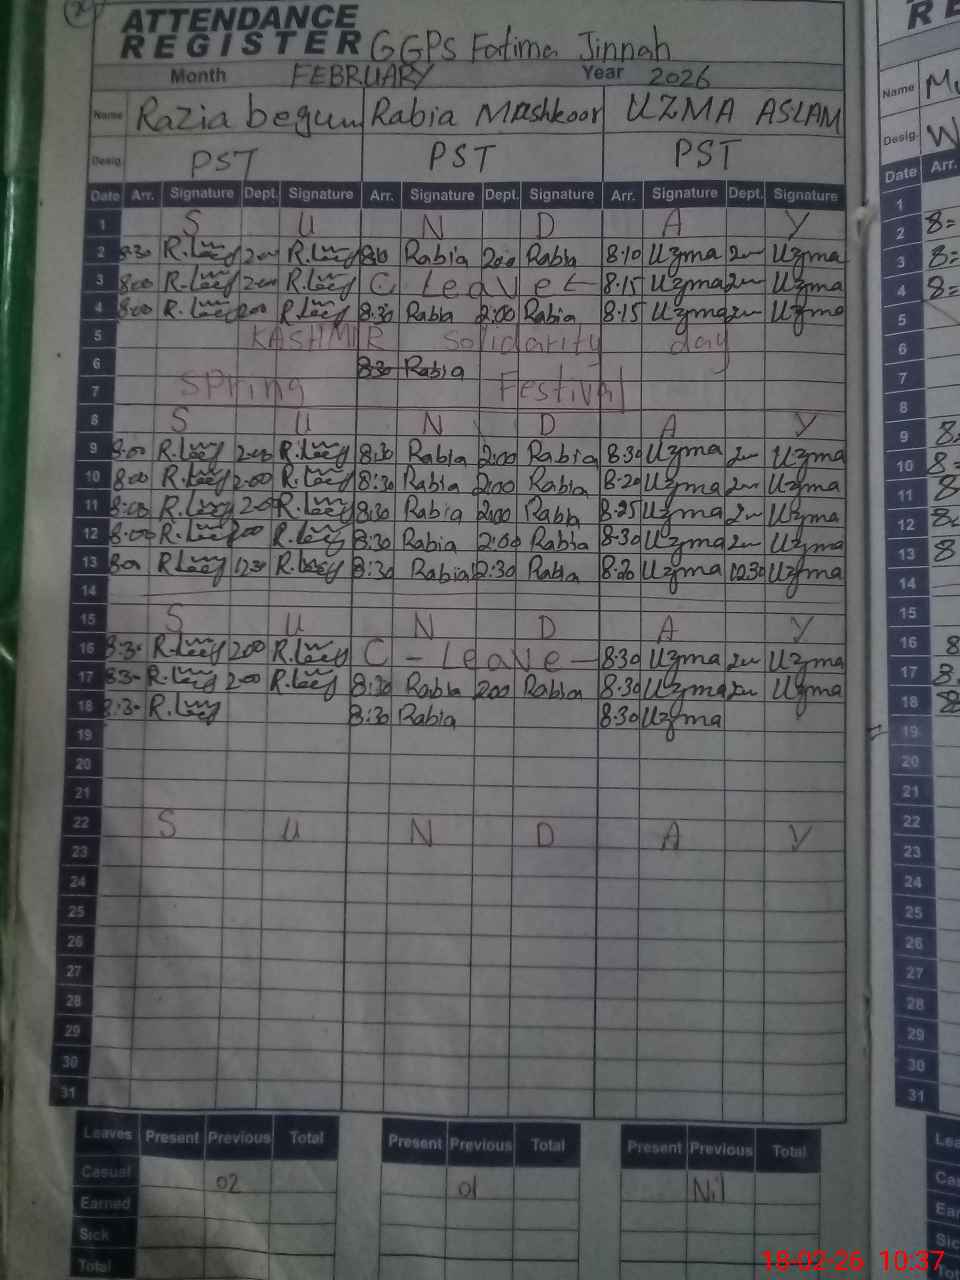 ATTENDANCE
REGISTER GGPS Fatima Jinnah
Month FEBRUARY Year 2026
Name Razia begum Rabia Mashkoor UZMA ASLAM
Desig. PST PST PST
Date Arr. Signature Dept. Signature Arr. Signature Dept. Signature Arr. Signature Dept. Signature
1 S U N D A Y
2 8:30 200 Rabia 200 Rabia 8:10 Uzma Uzma
3 8:00 200 C Leave 8:15 Uzma Uzma
4 8:00 200 8:30 Rabia 2:00 Rabia 8:15 Uzma Uzma
5 KASHMIR Solidarity day
6 8:30 Rabia
7 SPring Festival
8 S U N D A Y
9 8:00 200 8:30 Rabia 2:00 Rabia 8:30 Uzma Uzma
10 8:00 2:00 8:30 Rabia 2:00 Rabia 8:20 Uzma Uzma
11 8:00 200 8:30 Rabia 2:00 Rabia 8:25 Uzma Uzma
12 8:00 200 8:30 Rabia 2:00 Rabia 8:30 Uzma Uzma
13 1230 8:30 Rabia 12:30 Rabia 8:20 Uzma 12.30 Uzma
14
15 S U N D A Y
16 8:30 200 C - Leave - 8:30 Uzma Uzma
17 8:30 200 8:30 Rabia 200 Rabia 8:30 Uzma Uzma
18 8:30 8:30 Rabia 8:30 Uzma
19
20
21
22 S U N D A Y
23
24
25
26
27
28
29
30
31
Leaves Present Previous Total Present Previous Total Present Previous Total
Casual 02 01 Nil
Earned
Sick
Total
RE
Name
Desig. W
Date Arr.
1
2 8=
3 8=
4 8=
5
6
7
8
9 8
10 8=
11 8
12 8
13 8
14
15
16 8
17 8
18 8
19
20
21
22
23
24
25
26
27
28
29
30
31
18-02-26 10:37